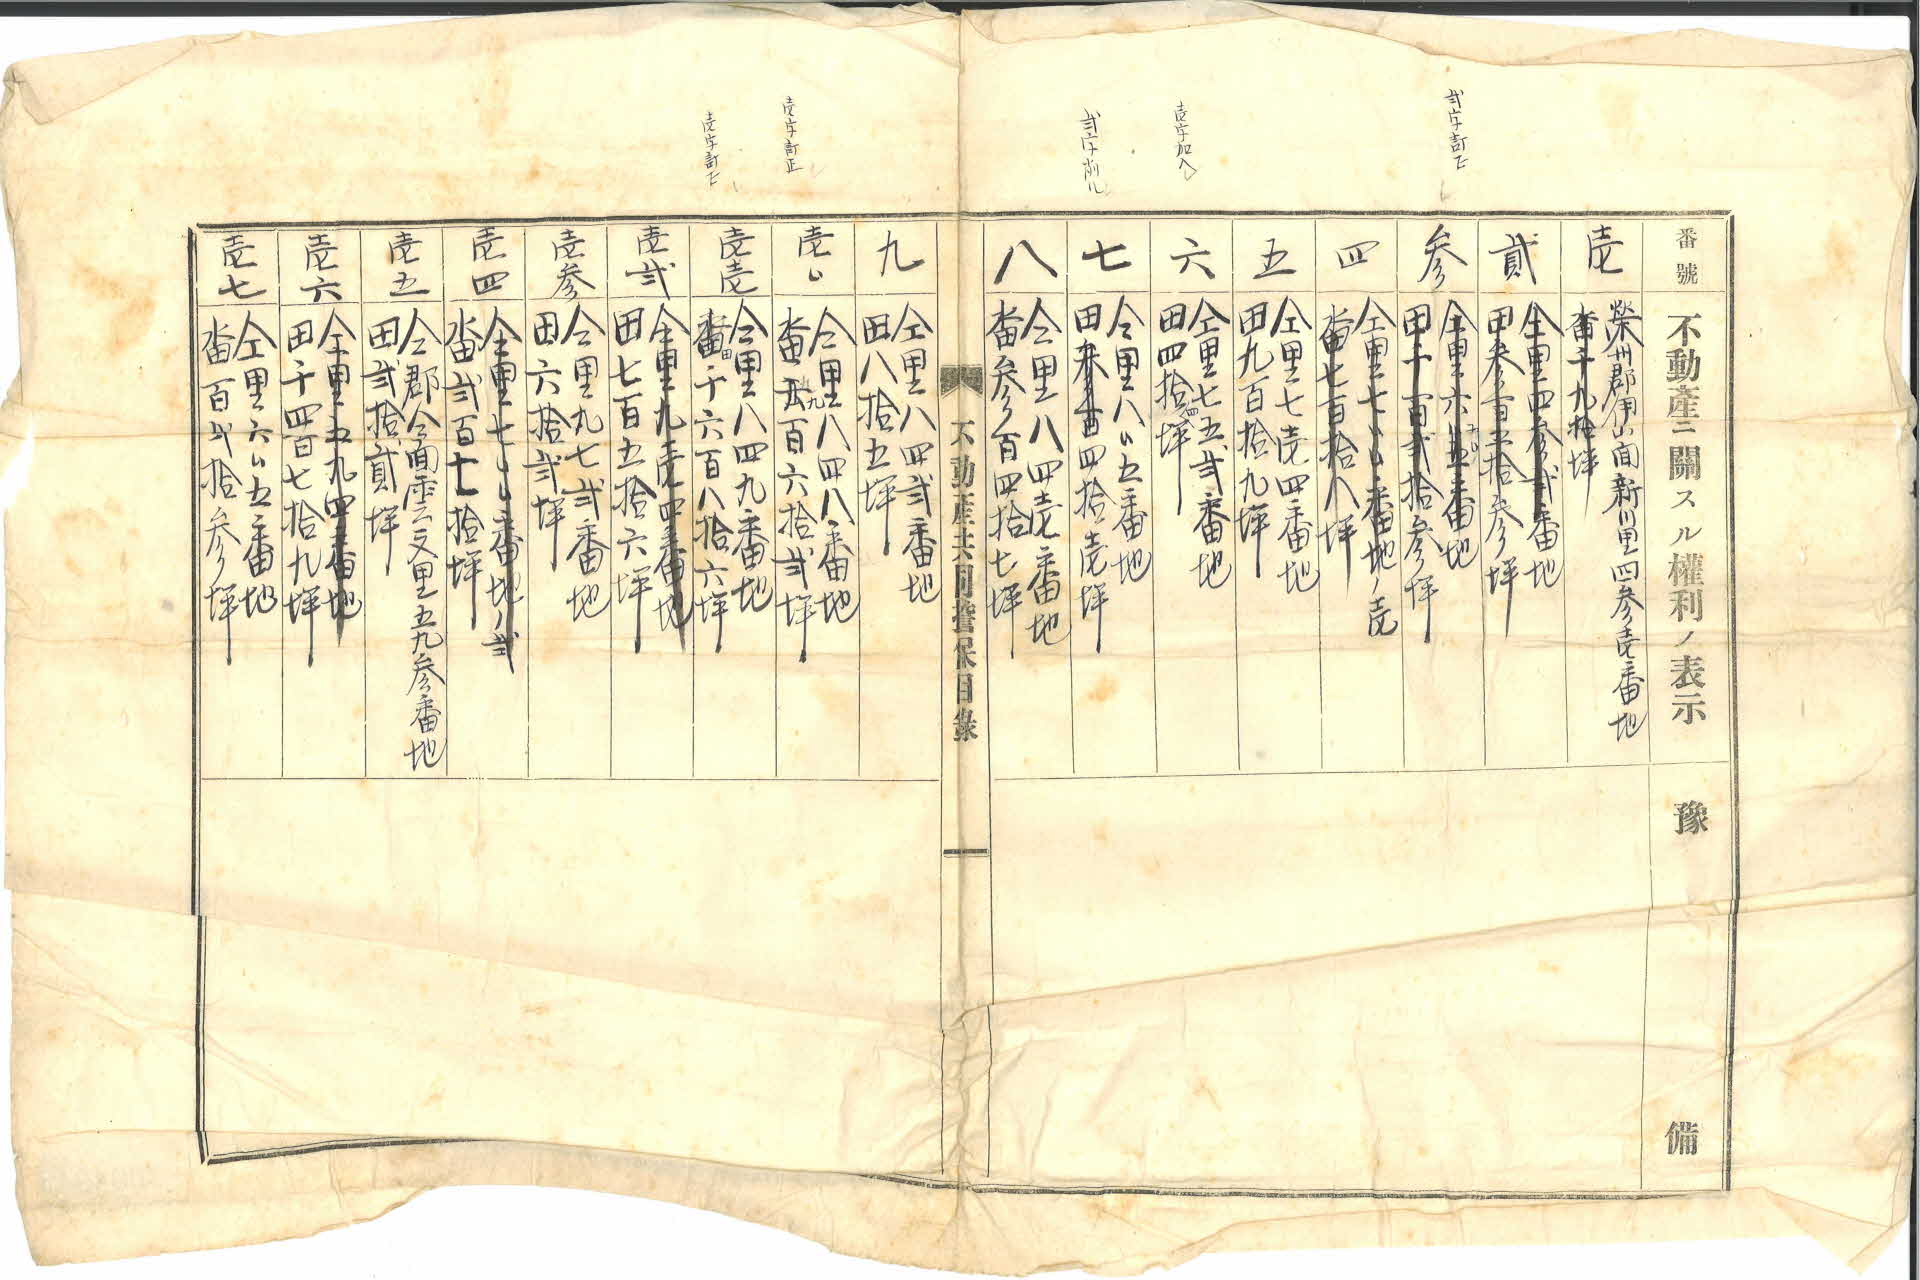 弐字訂正
壱字加入
弐字削ル
壱字訂正
壱字訂正
番號
不動產ニ關スル權利ノ表示
豫備
壱
榮州郡伊山面新川里四参壱番地
畓千九拾坪
貳
仝里四参弐番地
田参百五拾参坪
参
仝里六五番地
田千百弐拾参坪
四
仝里七〇〇番地ノ壱
畓七百拾八坪
五
仝里七壱四番地
田九百拾九坪
六
仝里七五弐番地
田四拾四坪
七
仝里八〇五番地
田四拾壱坪
八
仝里八四壱番地
畓参百四拾七坪
不動產共同擔保目錄
九
仝里八四弐番地
田八拾五坪
壱〇
仝里八四八番地
畓九百六拾弐坪
壱壱
仝里八四九番地
田千六百八拾六坪
壱弐
仝里九壱四番地
田七百五拾六坪
壱参
仝里九七弐番地
田六拾弐坪
壱四
仝里七〇〇番地ノ弐
畓弐百七拾坪
壱五
仝郡仝面雲文里五九参番地
田弐拾貳坪
壱六
仝里五九四番地
田千四百七拾九坪
壱七
仝里六〇五番地
畓百弐拾参坪